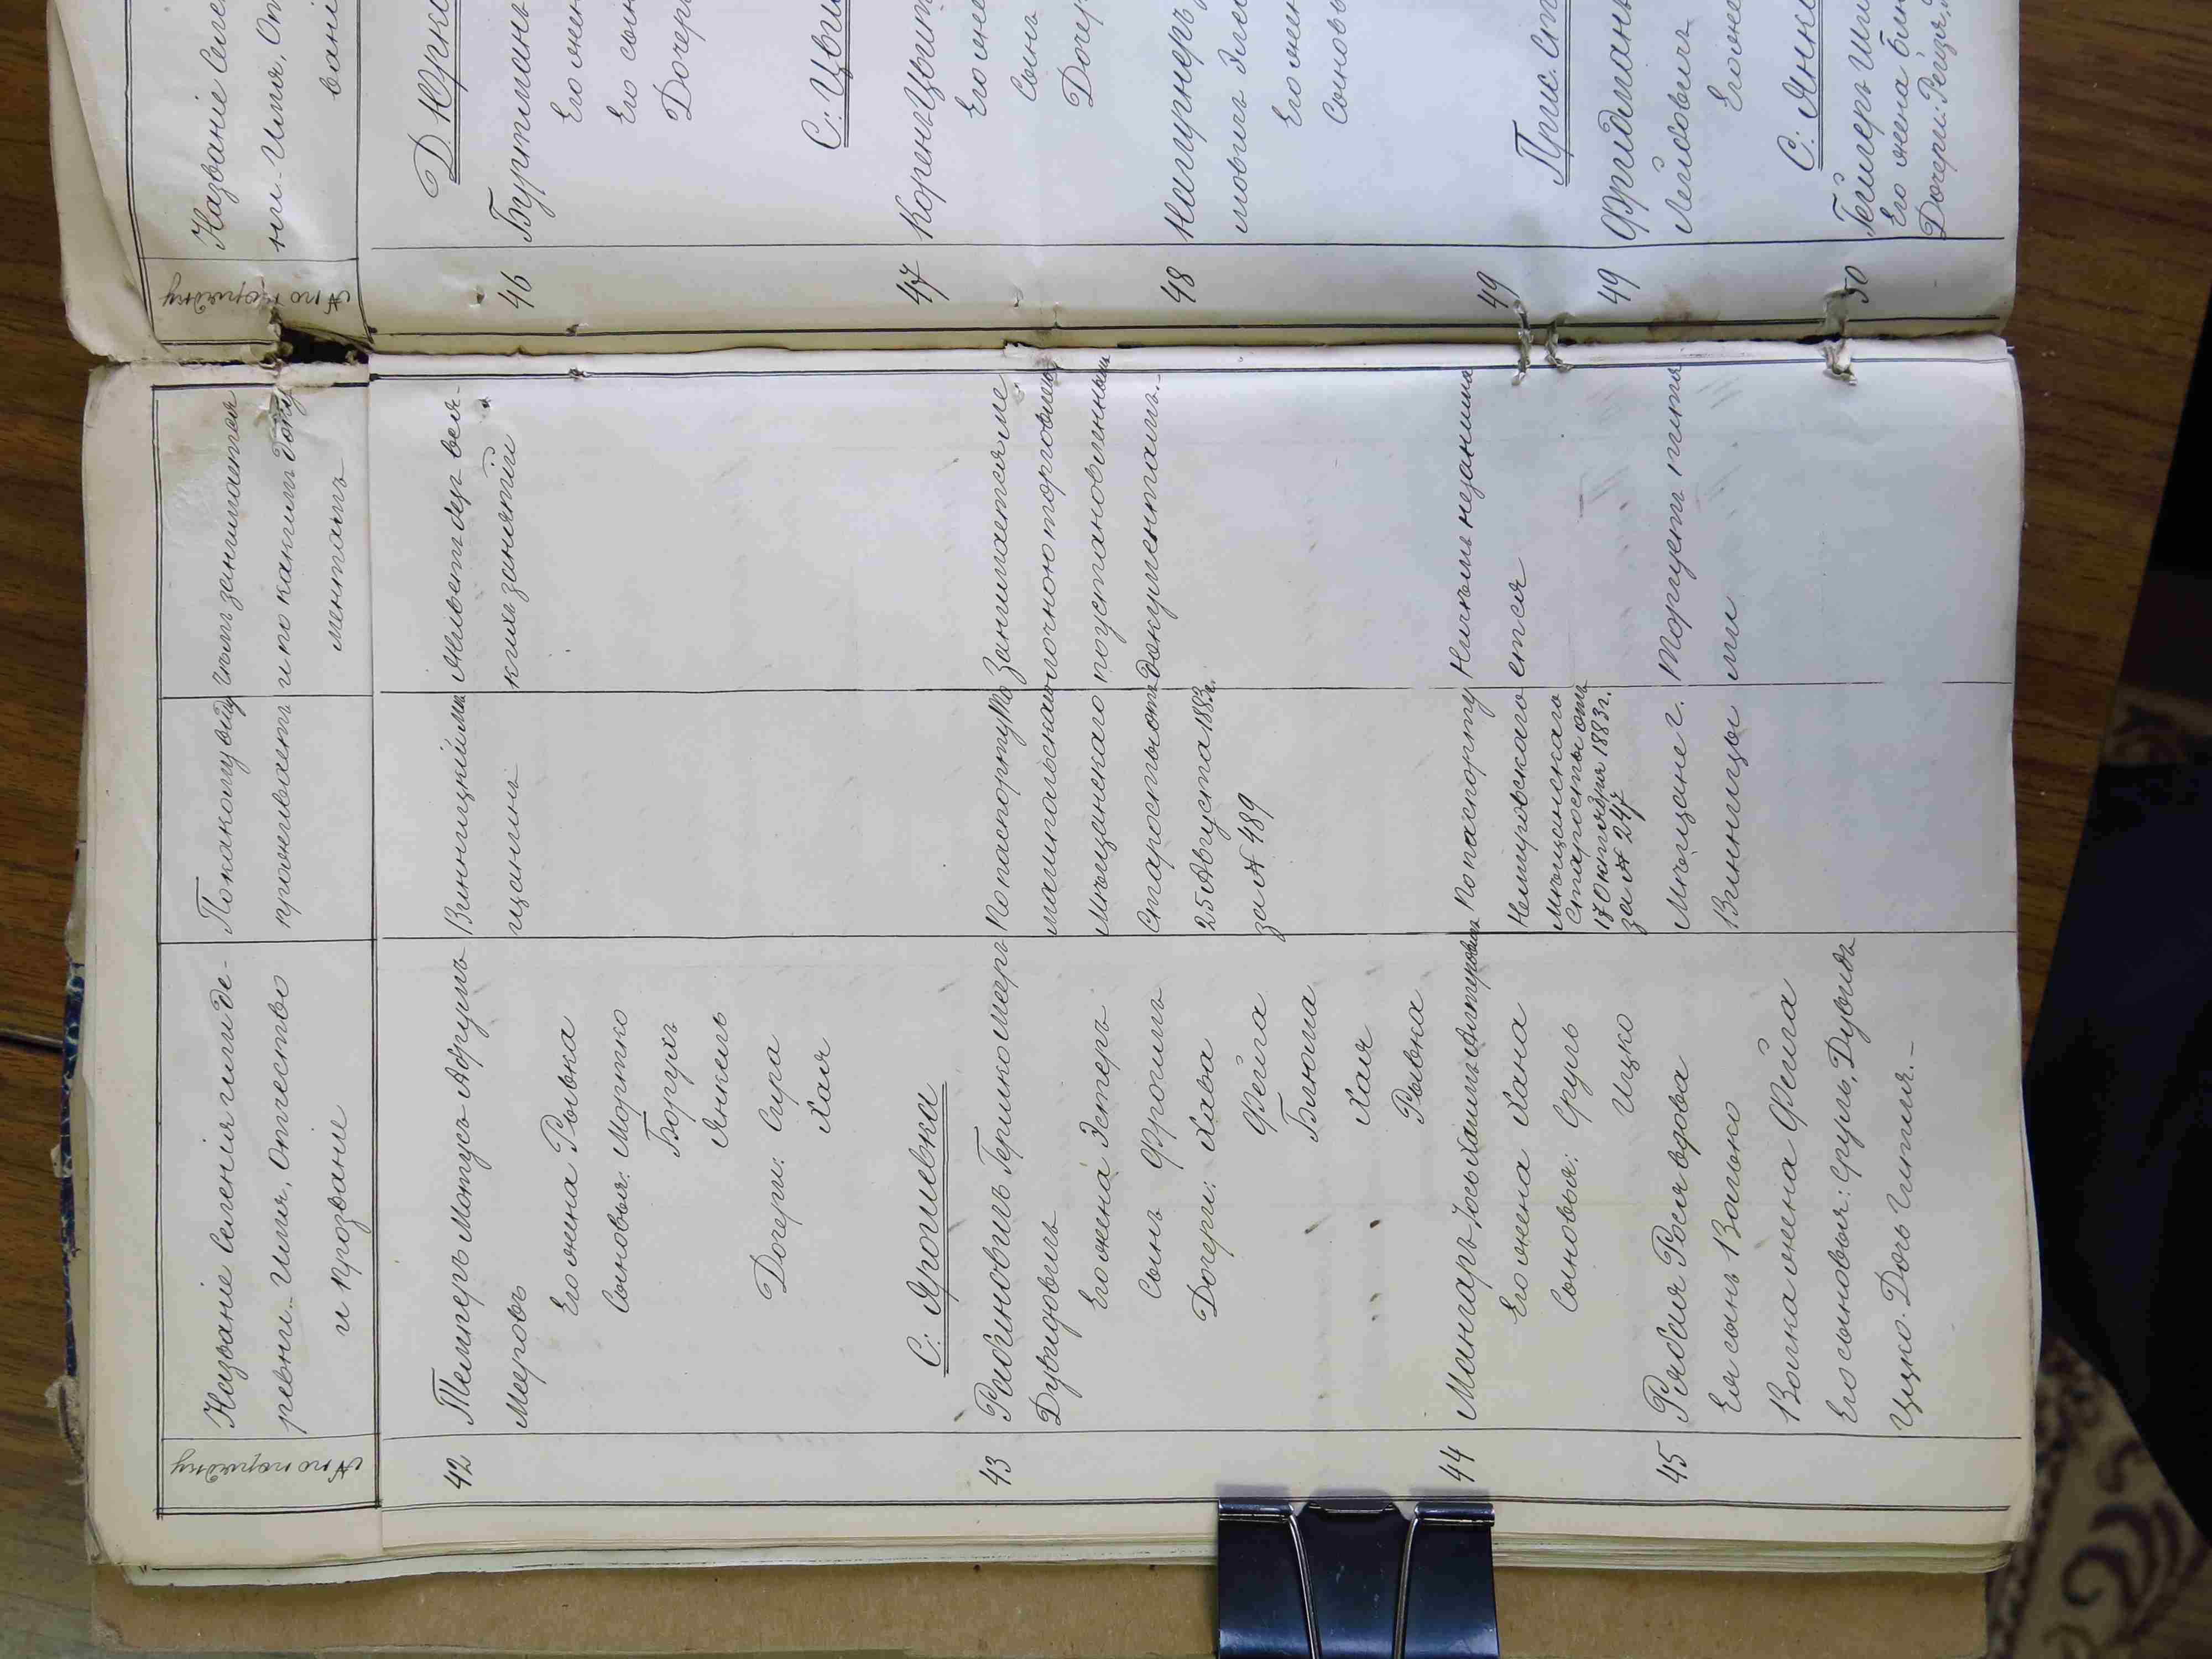 № по порядку
Названіе Селенія или де-
ревни. Имя, Отчество
и прозваніе
По какому виду
проживаетъ
чѣмъ занимается
и по какимъ доку
ментамъ
42
Темперъ Мотусь-Абрумъ
Мееровъ
Его жена Рывка
Сыновья: Мортко
Борухъ
Янкель
Дочери: Сура
Хая
Винницкій мѣ
щанинъ
Живетъ безъ вся-
кихъ занятій
С: Ярошевка
43
Рабиновичъ Гершко Мееръ
Дувидовичъ
Его жена Эстеръ
Сынъ Фроимъ
Дочери: Хава
Фейга
Бинома
Хая
Рывка
По паспорту
Мѣщанскаго
Старосты отъ
25 Августа 1883 г.
за № 489
Занимается ме
лочною торговлею
по установленнымъ
документамъ.
44
Мангаръ Іось Хаимъ
Его жена Хана
Сыновья: Сруль
Ицко
По паспорту
Немировскаго
мѣщанскаго
старосты отъ
17 Октября 1883 г.
за № 247
Ничѣмъ незанима
ется
45
Рябая Рося вдова
Ея сынъ Волько
Волька жена Фейга
Его сыновья: Сруль, Дувидъ
Ицко. Дочь Гитля.-
Мѣщане г.
Винницы
Торгуетъ пить
ями
№ по порядку
Названіе Селе
ни. Имя, От
вані
Д. Юрк
46
Буртманъ
Его жен
Его сын
Дочер
С: Цви
47
Корень-Цвит
Его жен
Сынъ
Дочер
48
Его жен
Сыновь
49
49
Фридманъ
Лейбовичъ
Его жен
С: Янк
50
Гейлеръ
Его жена Бин
Дочери: Рейзя,